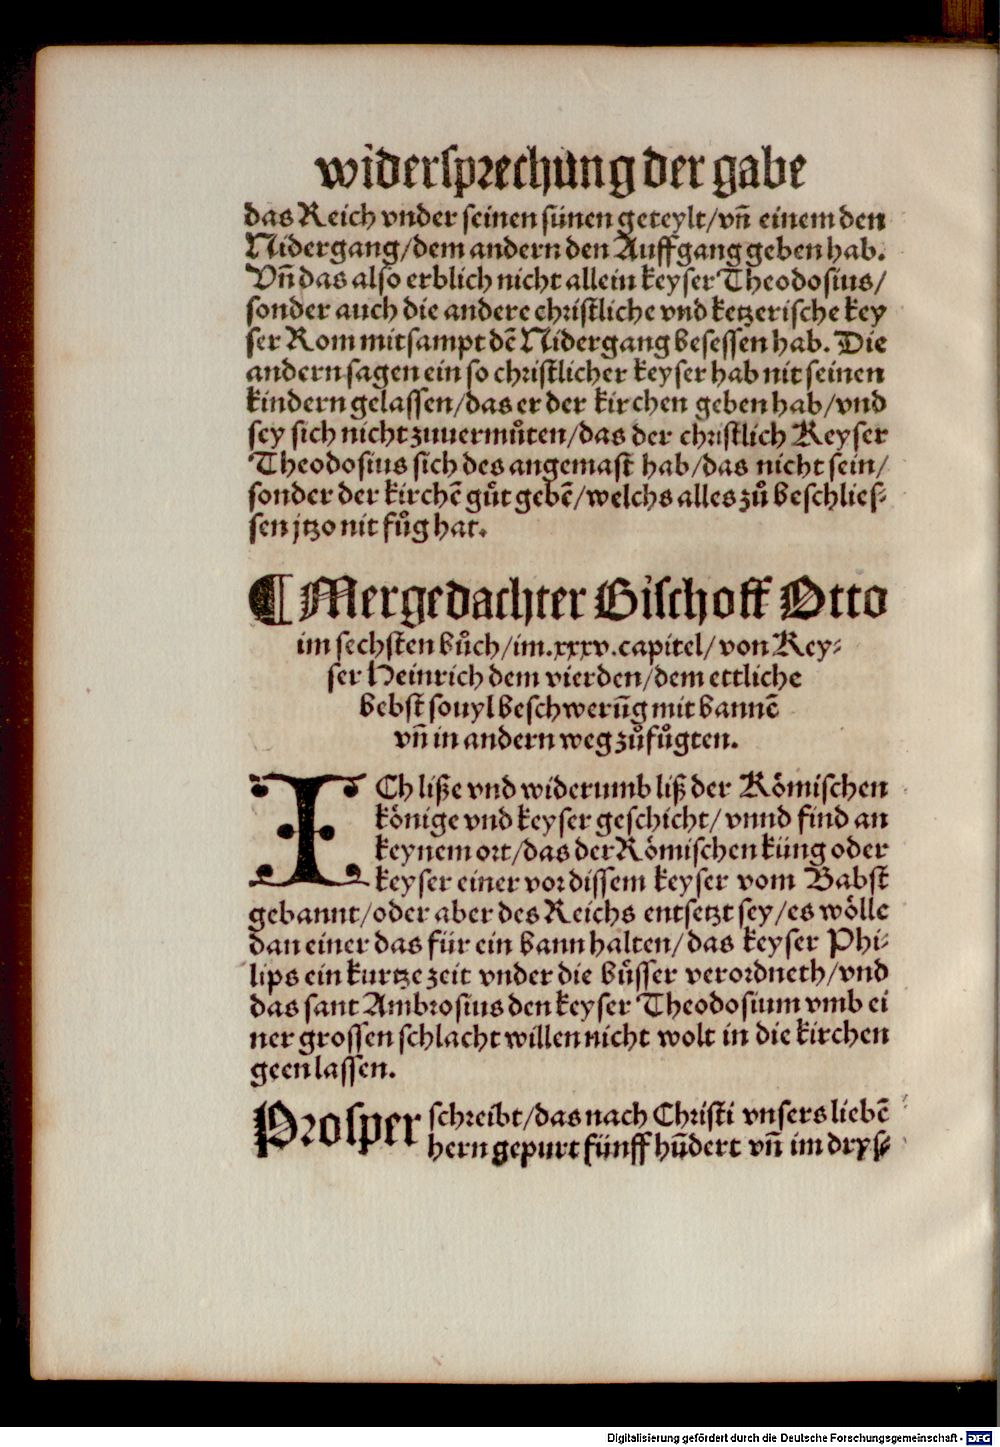 widersprechung der gabe
das Reich vnder seinen sünen geteylt/vñ einem den
Nidergang/dem andern den Auffgang geben hab.
Vñ das also erblich nicht allein keyser Theodosius/
sonder auch die andere christliche vnd ketzerische key
ser Rom mitsampt dẽ Nidergang besessen hab. Die
andern sagen ein so christlicher keyser hab nit seinen
kindern gelassen/das er der kirchen geben hab/vnd
sey sich nicht zuuermůten/das der christlich Keyser
Theodosius sich des angemast hab/das nicht sein/
sonder der kirchẽ gůt gebẽ/welchs alles zů beschlies⸗
sen jtzo nit fůg hat.
¶ Mergedachter Bischoff Otto
im sechsten bůch/im.xxxv.capitel/von Key⸗
ser Heinrich dem vierden/dem ettliche
bebst souyl beschwerũg mit bannẽ
vñ in andern weg zůfůgten.
ICh liße vnd widerumb liß der Römischen
könige vnd keyser geschicht/vnnd find an
keynem ort/das der Römischen küng oder
keyser einer vor dissem keyser vom Babst
gebannt/oder aber des Reichs entsetzt sey/es wölle
dan einer das für ein bann halten/das keyser Phi⸗
lips ein kurtze zeit vnder die büsser verordneth/vnd
das sant Ambrosius den keyser Theodosium vmb ei
ner grossen schlacht willen nicht wolt in die kirchen
geen lassen.
Prosper schreibt/das nach Christi vnsers liebẽ
hern gepurt fünff hũdert vñ im dryss⸗
Digitalisierung gefördert durch die Deutsche Forschungsgemeinschaft - DFG